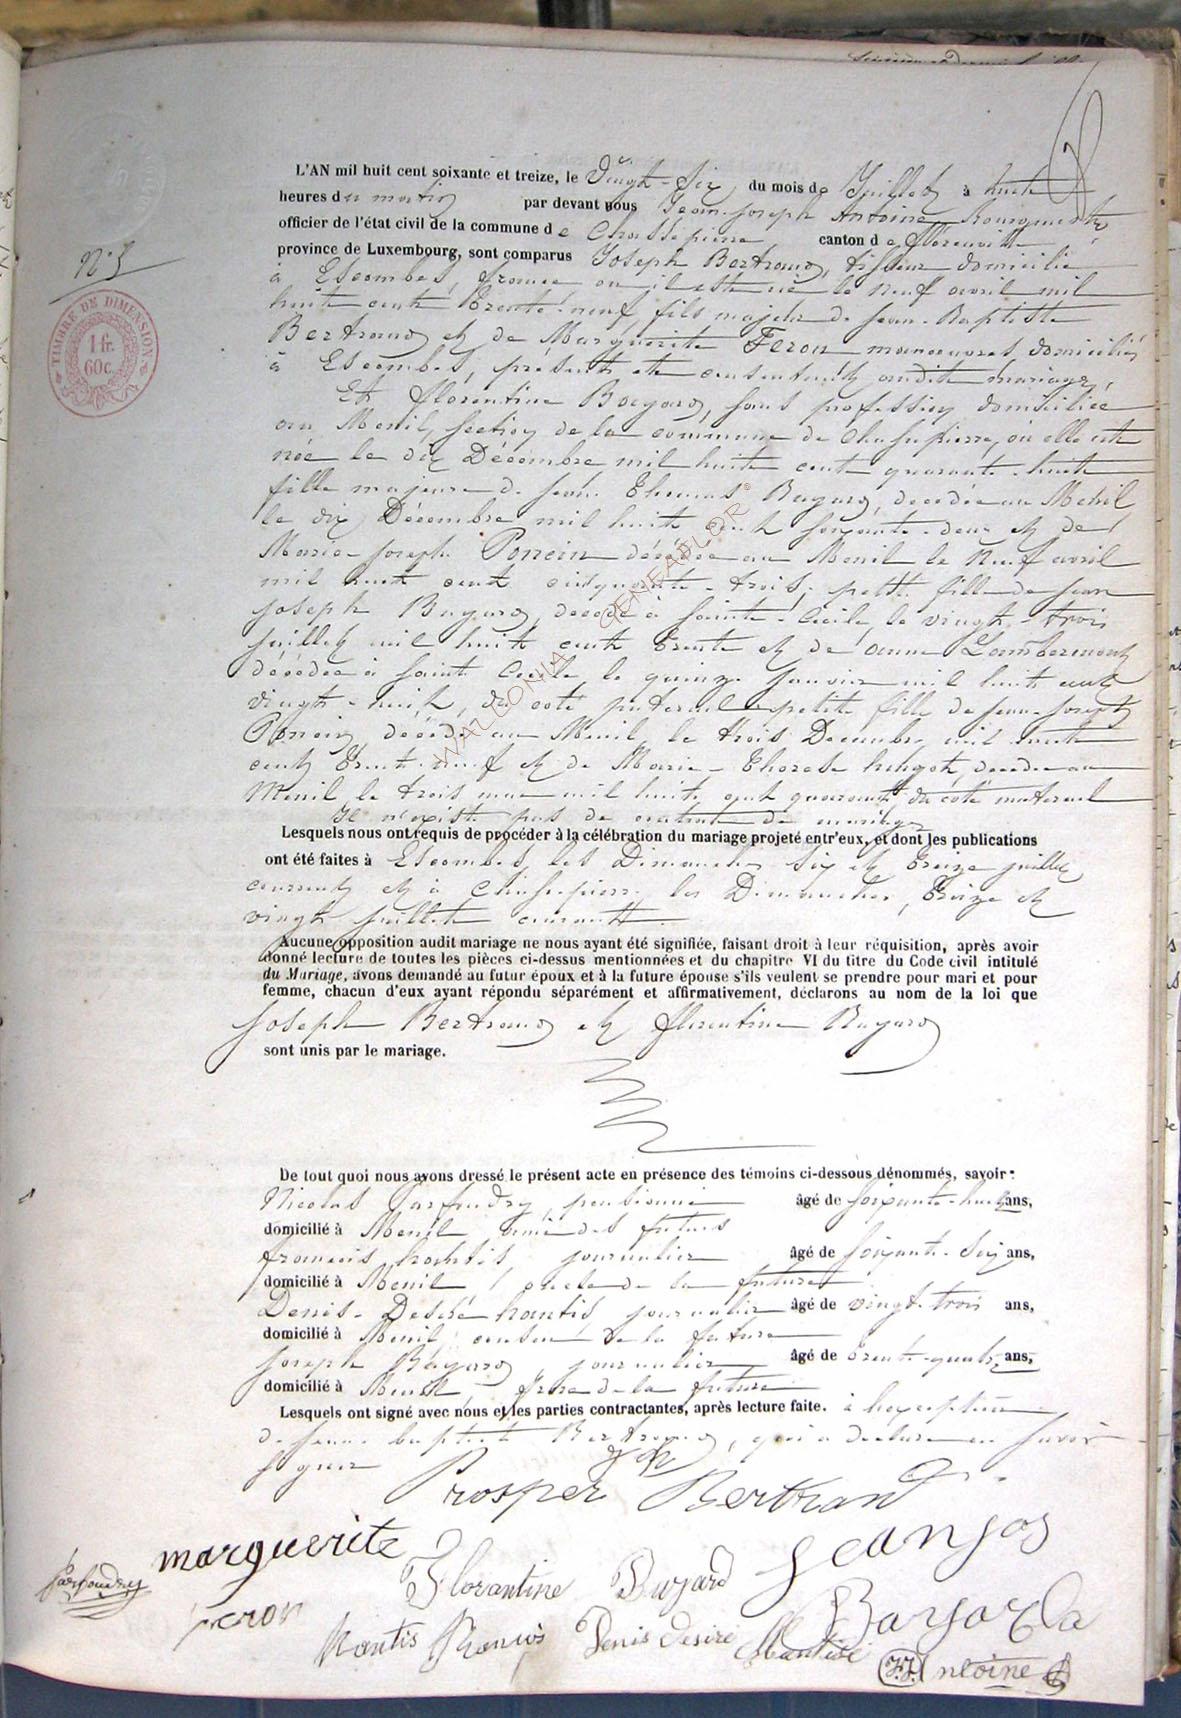 N° 5
TIMBRE DE DIMENSION
1 fr.
60 c.
L'AN mil huit cent soixante et treize, le Vingt-Six, du mois de Juillet à huit
heures du matin par devant nous Jean-Joseph Antoine Bourgmestre,
officier de l'état civil de la commune de Chassepierre canton de Florenville
province de Luxembourg, sont comparus Joseph Bertrand, tisseur domicilié
à Escombes, france où il est né le neuf avril mil
huit cent trente-neuf fils majeur de Jean-Baptiste
Bertrand et de Marguerite Feron manoeuvres, domiciliés
à Escombes, présents et consentants audit mariage,
Et florentine Bayard, sans profession domiciliée
au Menil, section de la commune de Chassepierre, où elle est
née le dix Décembre mil huit cent quarante-huit
fille majeure de Jean Thomas Bayard, décédé au Menil
le dix Décembre mil huit cent soixante-deux et de
Marie-Joseph Poncin décédée au Menil le neuf avril
mil huit cent cinquante-trois, petite fille de Jean
Joseph Bayard, décédé à Sainte-Cécile le vingt-trois
Juillet mil huit cent trente et de anne Lambermont
décédée à Saint Cecile le quinze Janvier mil huit cent
vingt-huit, du coté paternel, petite fille de Jean-Joseph
Poncin décédé au Menil le trois Decembre mil huit
cent trente-neuf et de Marie-Therese hugot, décédée au
Menil le trois mai mil huit cent quarante du coté maternel
Il n'existe pas de contrat de mariage
Lesquels nous ont requis de procéder à la célébration du mariage projeté entr'eux, et dont les publications
ont été faites à Escombes, les Dimanches six et treize juillet
courant et à Chassepierre les Dimanches, treize et
vingt Juillet courant.
Aucune opposition audit mariage ne nous ayant été signifiée, faisant droit à leur réquisition, après avoir
donné lecture de toutes les pièces ci-dessus mentionnées et du chapitre VI du titre du Code civil intitulé
du Mariage, avons demandé au futur époux et à la future épouse s'ils veulent se prendre pour mari et pour
femme, chacun d'eux ayant répondu séparément et affirmativement, déclarons au nom de la loi que
Joseph Bertrand et florentine Bayard
sont unis par le mariage.
De tout quoi nous avons dressé le présent acte en présence des témoins ci-dessous dénommés, savoir :
Nicolas Parfondry, pensionné âgé de soixante-huit ans,
domicilié à Menil ami des futurs
francois hantis, journalier âgé de soixante-six ans,
domicilié à Menil, oncle de la future
Denis-Desiré hantis journalier âgé de vingt-trois ans,
domicilié à Menil, cousin de la future
Joseph Bayard, journalier âgé de trente-quatre ans,
domicilié à Menil, frere de la future
Lesquels ont signé avec nous et les parties contractantes, après lecture faite. à l'exception
de Jean baptiste Bertrand, qui a déclaré ne savoir
signer
Prosper Bertrand
marguerite
feron
Parfondry
Florantine Bayard
Jeanjos
Bayard
Hantis François
Denis desiré Hantisé
JJ Antoine
WALLONIA © GENEAFLOR ©